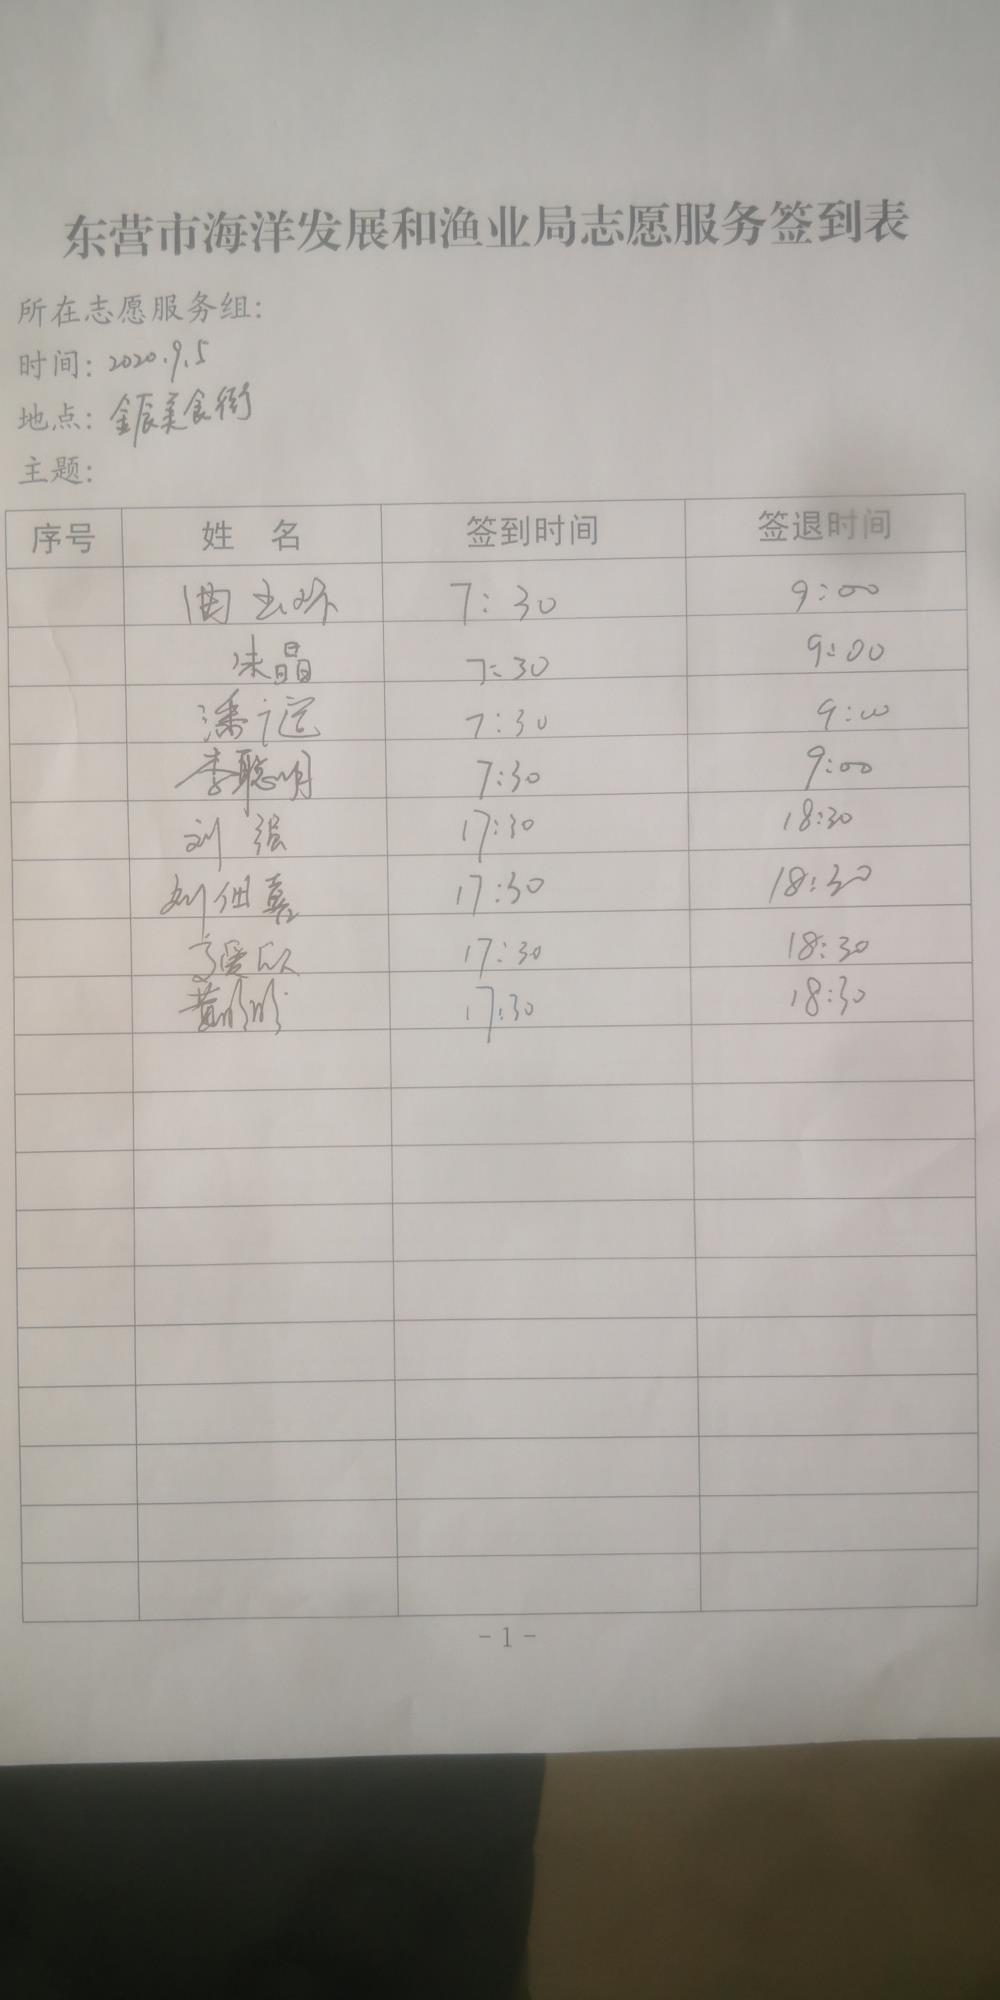 东营市海洋发展和渔业局志愿服务签到表
所在志愿服务组：
时间：2020.9.5
地点：金辰美食街
主题：
序号 姓 名 签到时间 签退时间
7:30 9:00
晶 7:30 9:00
潘 7:30 9:00
李聪明 7:30 9:00
刘强 17:30 18:30
刘佃 17:30 18:30
17:30 18:30
黄彬彬 17:30 18:30
- 1 -